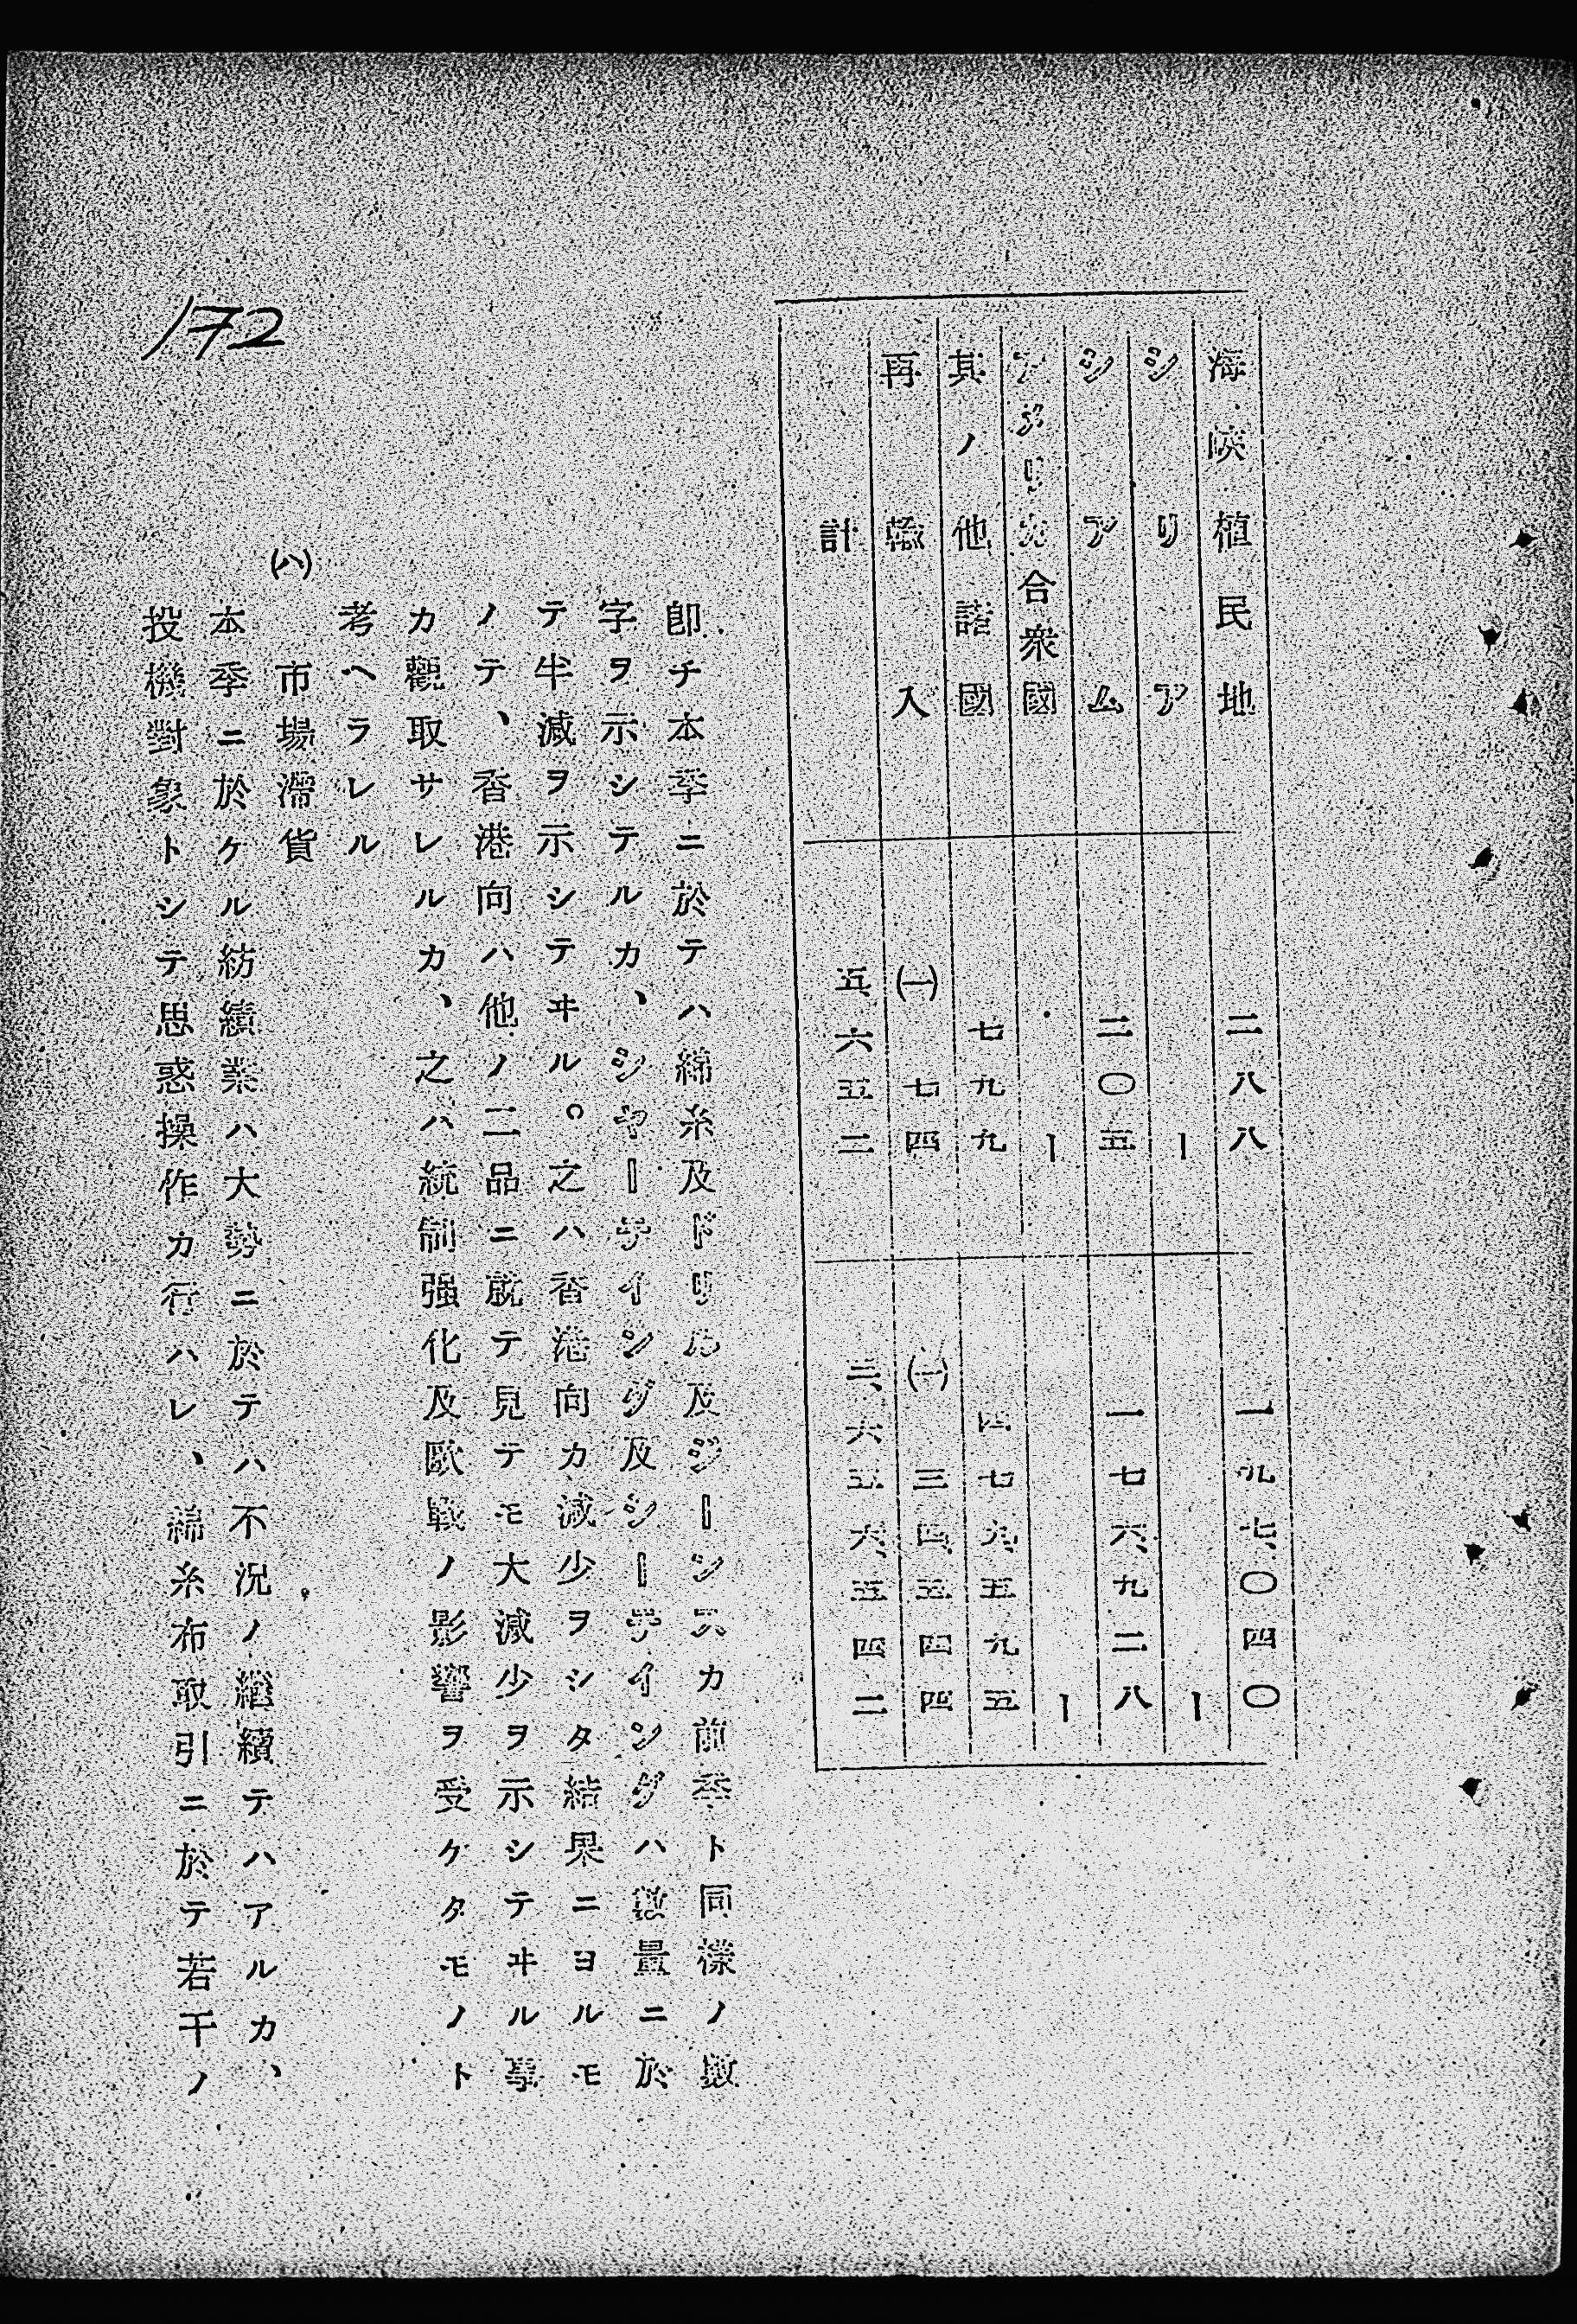 海峽植民地 二八八 一九七、〇四〇
シリア ー ー
シアム 二〇五 一七六、九二八
アメリカ合衆國 ー ー
其ノ他諸國 七九九 四七九、五九五
再輸入 (一) 七四 (一) 三四、五四四
計 五、六五二 三、六五六、五四二
卽チ本季ニ於テハ綿糸及ドリル及ジーンスカ前季ト同樣ノ數
字ヲ示シテルカ、シヤーテイング及シーテイングハ數量ニ於
テ半減ヲ示シテヰル。之ハ香港向カ減少ヲシタ結果ニヨルモ
ノテ、香港向ハ他ノ二品ニ就テ見テモ大減少ヲ示シテヰル事
カ觀取サレルカ、之ハ統制强化及歐戰ノ影響ヲ受ケタモノト
考ヘラレル
(ハ) 市場滯貨
本季ニ於ケル紡績業ハ大勢ニ於テハ不況ノ繼續テハアルカ、
投機對象トシテ思惑操作カ行ハレ、綿糸布取引ニ於テ若干ノ
172